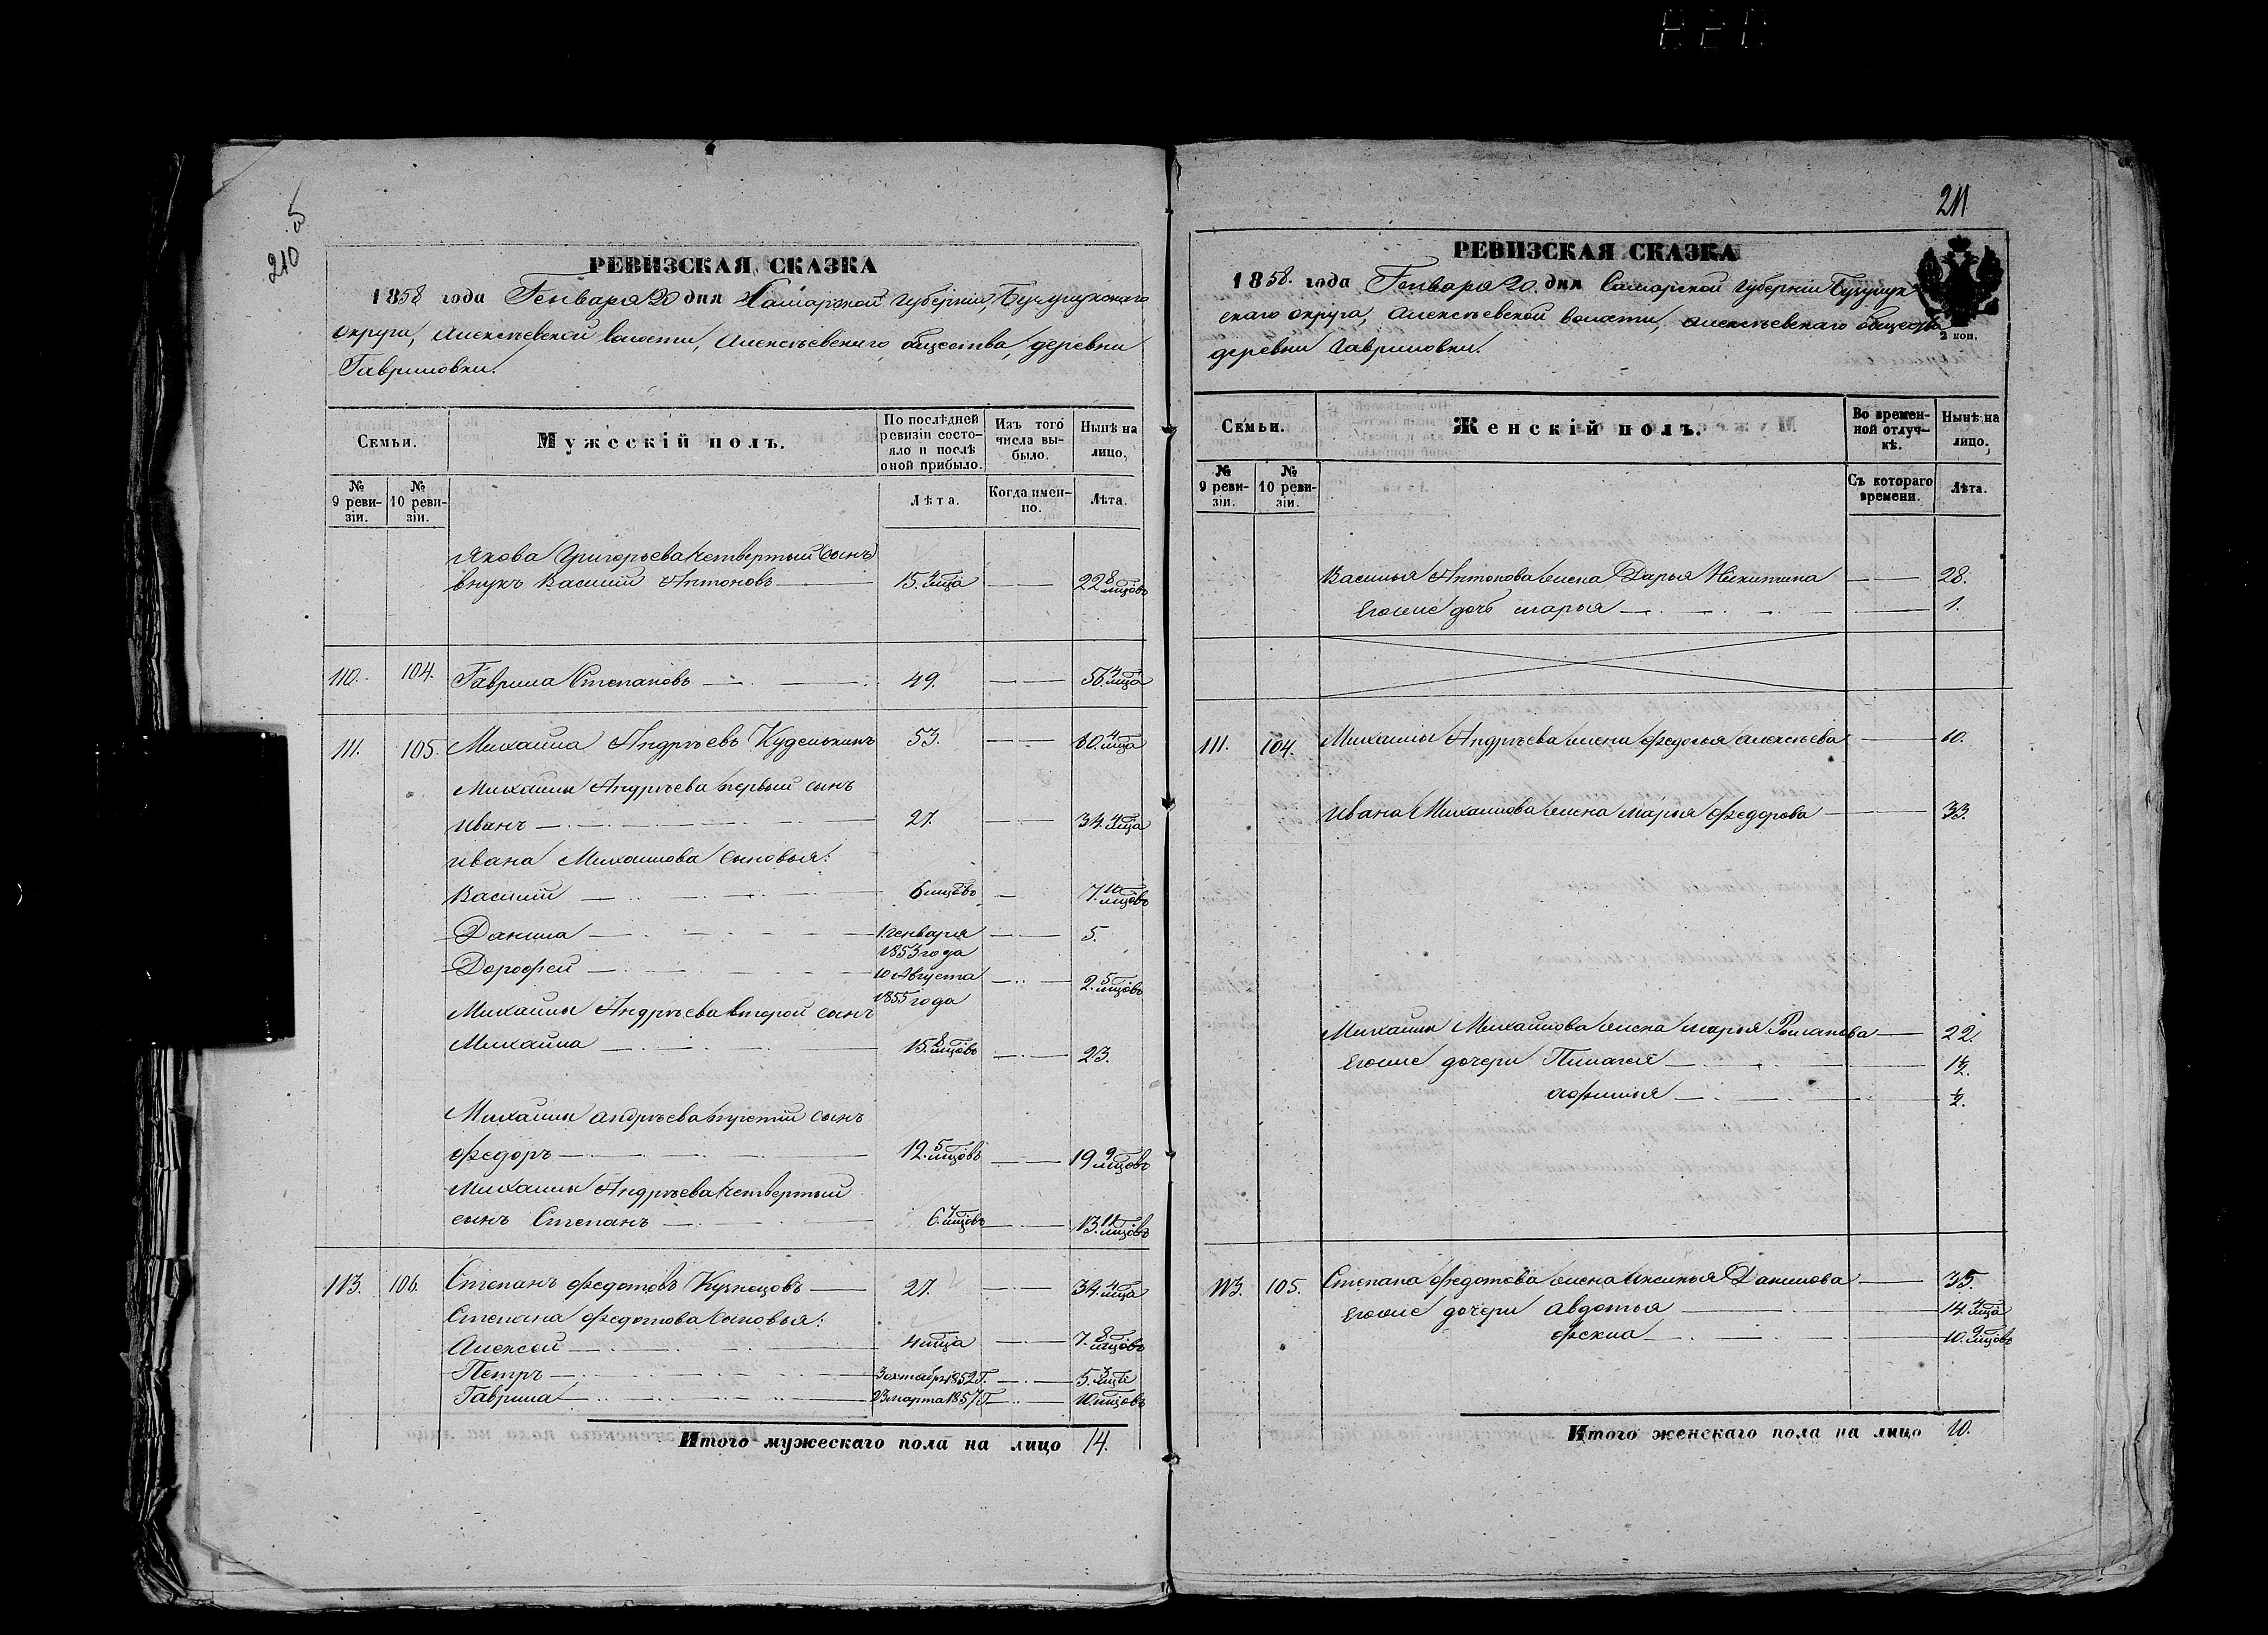 210
РЕВИЗСКАЯ СКАЗКА
1858 года Генваря 20 дня Самарской губернiи, Бузулукскаго
округа, Алексѣевской волости, Алексѣевскаго общества, деревни
Гавриловки.
Семьи.
Мужескій полъ.
По послѣдней ревизіи состояло и послѣ оной прибыло.
Изъ того числа выбыло.
Нынѣ на лицо.
№ 9 реви-зіи.
№ 10 реви-зіи.
Лѣта.
Когда имен-но.
Лѣта.
Якова Григорьева четвертый сынъ
внукъ Василий Антоновъ 15. 4 мца 22 8 мцовъ
110. 104. Гаврила Степановъ 49. 56. 4 мца
111. 105. Михаила Андрѣевъ Куделькинъ 53. 60. 4 мца
Михаилы Андрѣева первый сынъ
Иванъ 27. 34. 4 мца
Ивана Михаилова сыновья:
Василий 6 мцовъ 7. 10 мцовъ
Данила 1 генваря 1853 года 5.
Дорофей 10 Августа 1855 года 2. 5 мцовъ
Михаилы Андрѣева второй сынъ
Михаила 15. 8 мцовъ 23.
Михаилы Андрѣева третiй сынъ
Федоръ 12. 5 мцовъ 19 9 мцовъ
Михаилы Андрѣева четвертый
сынъ Степанъ 6. 7 мцовъ 13. 11 мцовъ
113. 106. Степанъ Федотовъ Кузнецовъ 27. 34. 4 мца
Степана Федотова сыновья:
Алексей 4 мца 7. 8 мцовъ
Петръ 3 октября 1852 Г. 5. 3 мца
Гаврила 23 марта 1857 Г 10 мцовъ
Итого мужескаго пола на лицо 14.
211
РЕВИЗСКАЯ СКАЗКА
1858. года Генваря 20. дня Самарской губернiи Бузулук
скаго округа, Алексѣевской волости, Алексѣевскаго общества
деревни Гавриловки.
2 коп.
Семьи.
Женскій полъ.
Во времен-ной отлуч-кѣ.
Нынѣ на лицо.
№ 9 реви-зіи.
№ 10 реви-зіи.
Съ котораго времени.
Лѣта.
Василья Антонова жена Дарья Никитина 28.
Егоже дочь Марья 1.
111. 104. Михаилы Андрѣева жена Федосья Алексѣева 60.
Ивана Михаилова жена Марья Федорова 33.
Михаилы Михаилова жена Марья Романова 22.
Егоже дочери Пилагея 1½.
Афимья ½.
113. 105. Степана Федотова жена Аксинья Данилова 35.
Егоже дочери Авдотья 14. 4 мца
Фекла 10. 9 мцовъ
Итого женскаго пола на лицо 10.